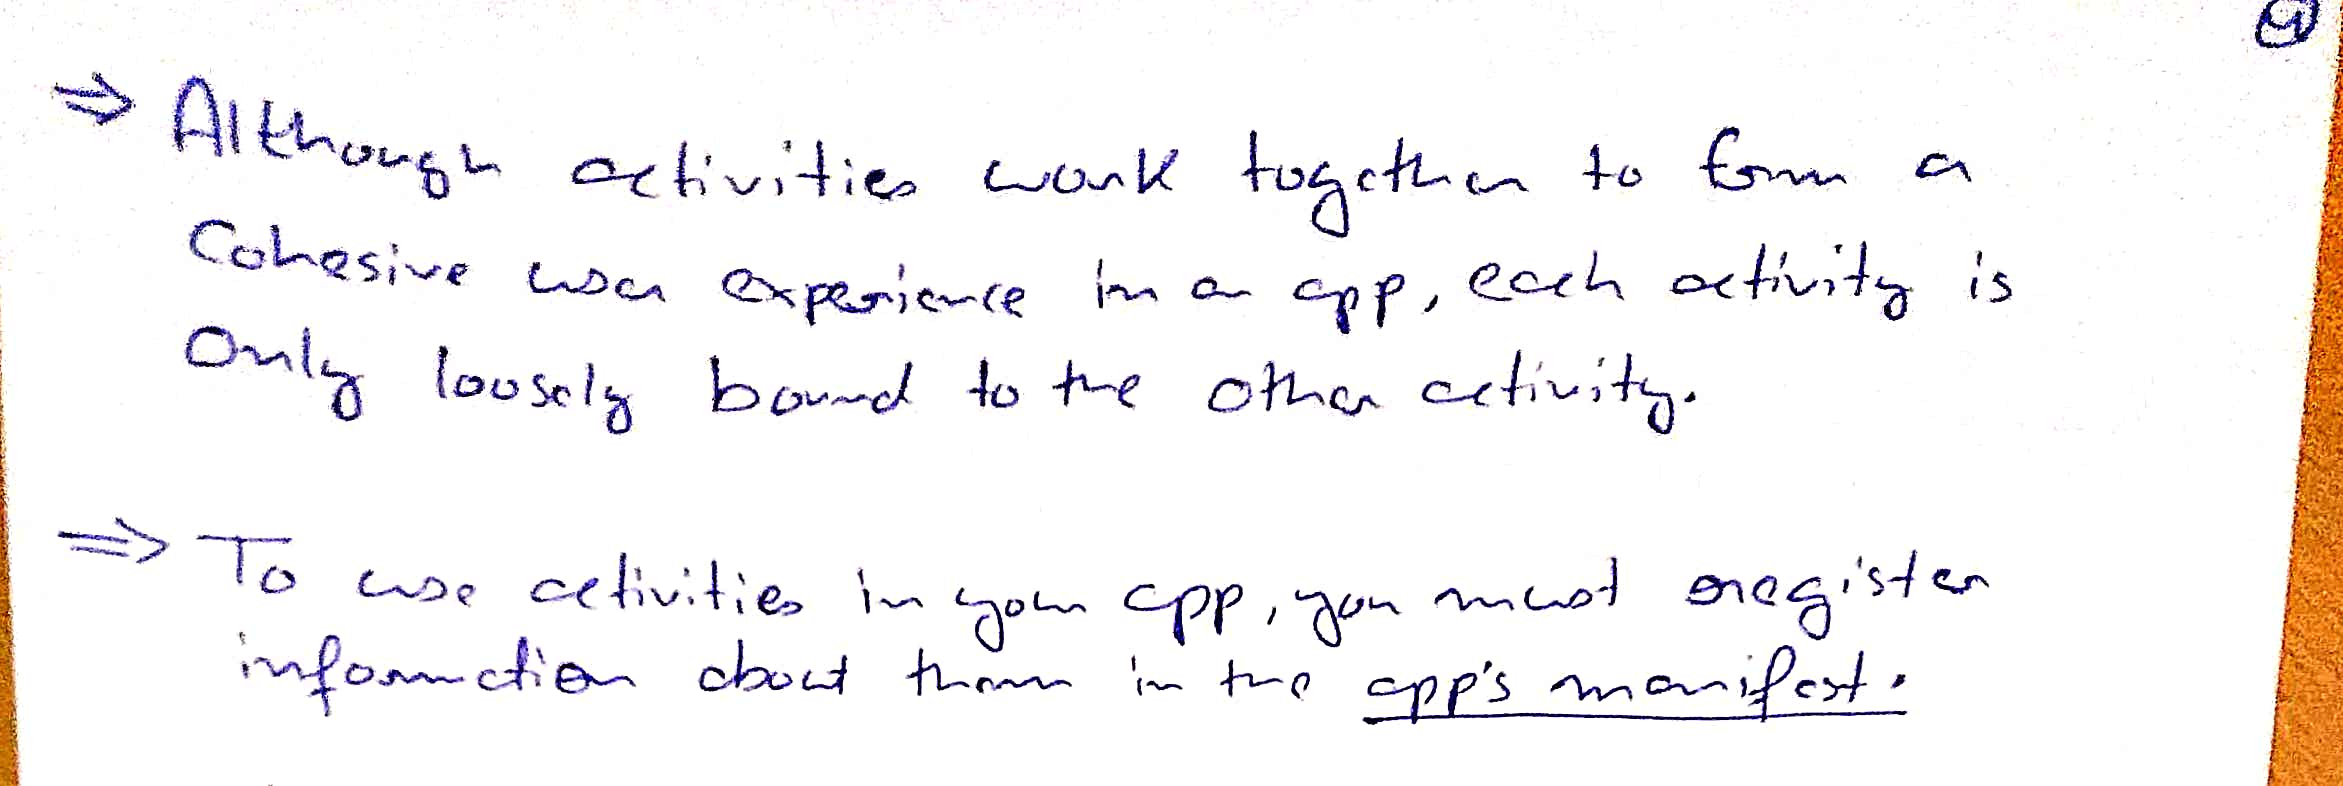 ⇒ Although activities work together to form a
Cohesive user experience in a app, each activity is
Only loosely bound to the other activity.
⇒ To use activities in your app, you must register
information about them in the app's manifest.